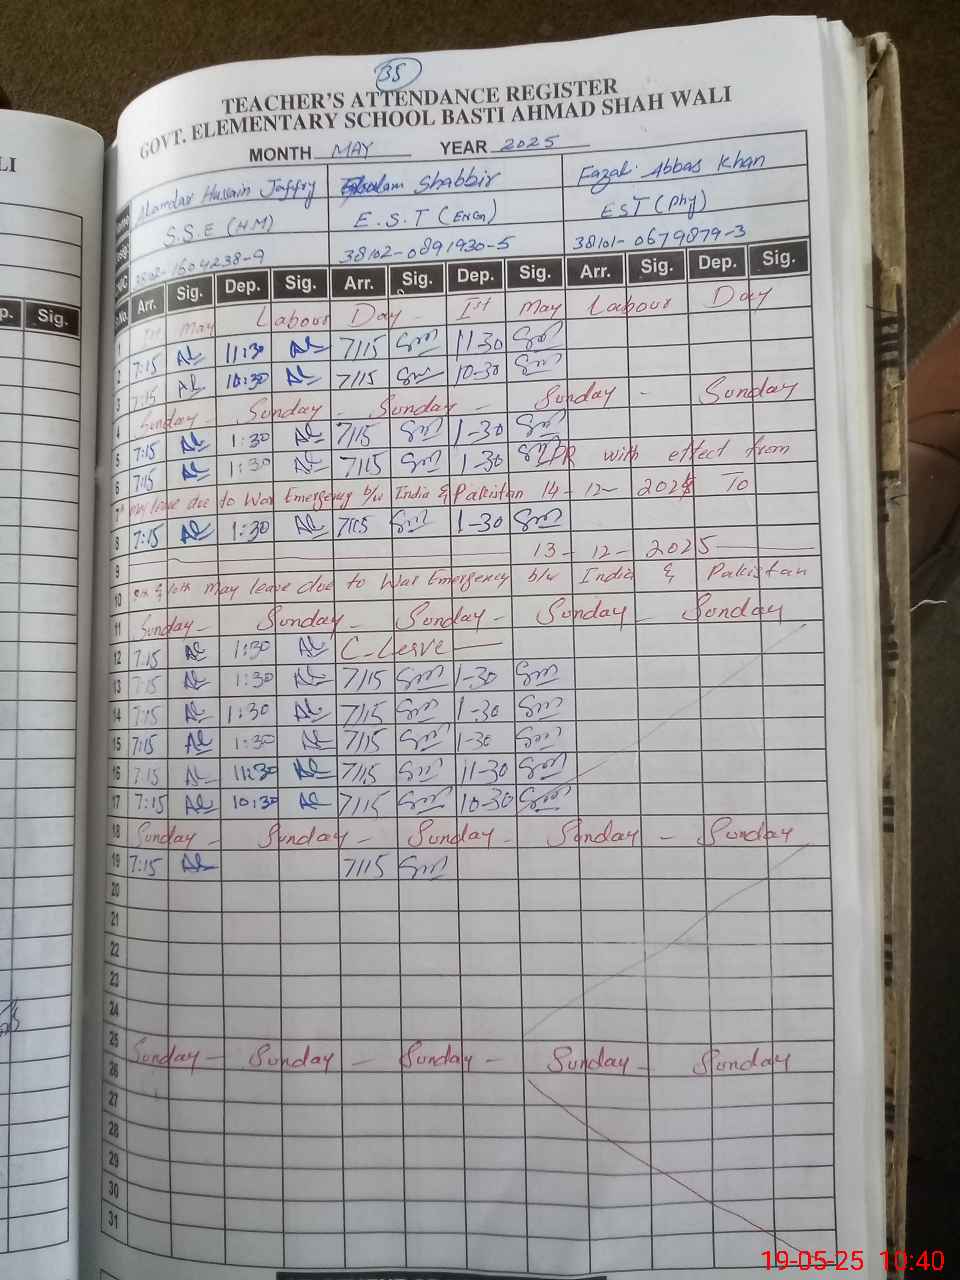 LI
p. Sig.
35
TEACHER'S ATTENDANCE REGISTER
GOVT. ELEMENTARY SCHOOL BASTI AHMAD SHAH WALI
MONTH MAY YEAR 2025
Alamdar Hussain Jaffry Gholam Shabbir Fazal Abbas Khan
S.S.E (HM) E.S.T (Eng) EST (Phy)
1604238-9 38102-0891930-5 38101-0679879-3
No. Arr. Sig. Dep. Sig. Arr. Sig. Dep. Sig. Arr. Sig. Dep. Sig.
1 Ist May Labour Day - Ist May Labour Day
2 7:15 11:30 7/15 11-30
3 7:15 10:30 7/15 10-30
4 Sunday - Sunday - Sunday - Sunday - Sunday
5 7:15 1:30 7/15 1-30
6 7:15 1:30 7/15 1-30 with effect from
7th may leave due to War Emergency b/w India & Pakistan 14-12-2024 To
8 7:15 1:30 7/15 1-30
9 13-12-2025
10 9th & 10th May leave due to War Emergency b/w India & Pakistan
11 Sunday - Sunday - Sunday - Sunday - Sunday
12 7:15 1:30 C-Leave
13 7:15 1:30 7/15 1-30
14 7:15 1:30 7/15 1-30
15 7:15 1:30 7/15 1-30
16 7:15 11:30 7/15 11-30
17 7:15 10:30 7/15 10-30
18 Sunday - Sunday - Sunday - Sunday - Sunday
19 7:15 7/15
20
21
22
23
24
25 Sunday - Sunday - Sunday - Sunday - Sunday
26
27
28
29
30
31
19-05-25 10:40